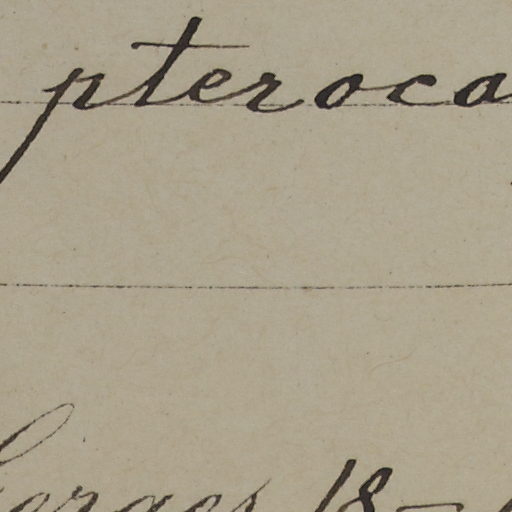 pteroca
Gorges 18-